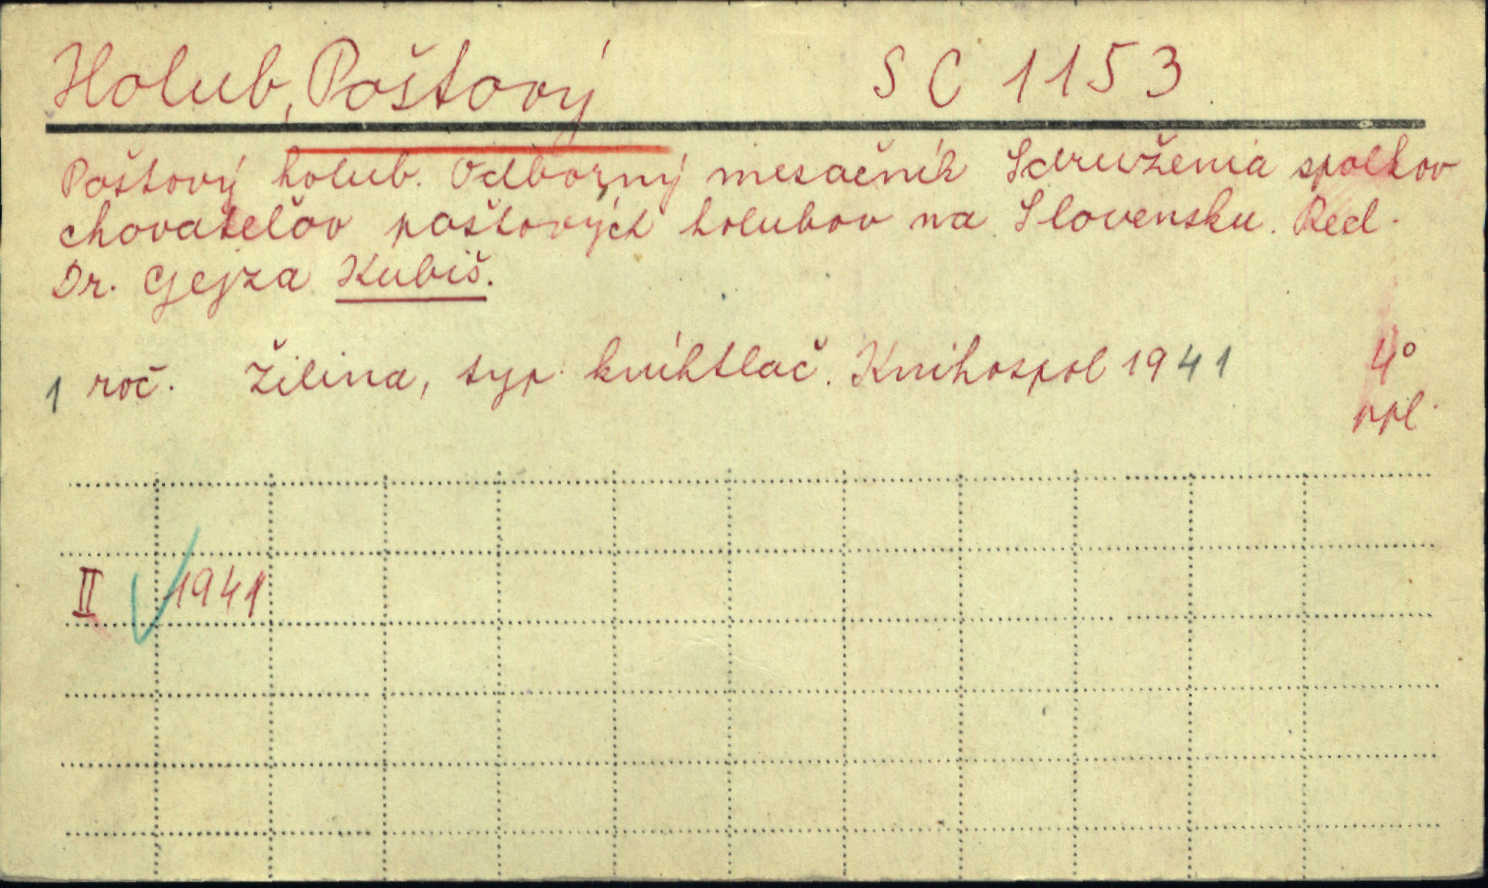 Holub, Poštový SC 1153
Poštový holub. Odborný mesačník Sdruženia spolkov
chovateľov poštových holubov na Slovensku. Red.
Dr. Gejza Kubiš.
1 roč. Žilina, typ. kníhtlač. Knihospol 1941 4°
ppl.
II 1941